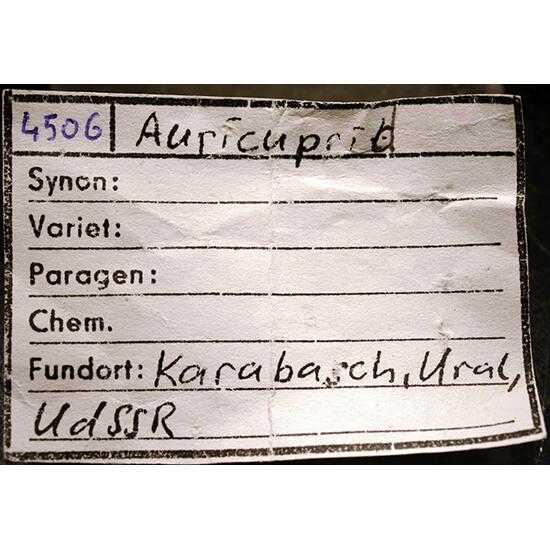 4506 Auricuprit
Synon:
Variet:
Paragen:
Chem.
Fundort: Karabasch, Ural,
UdSSR